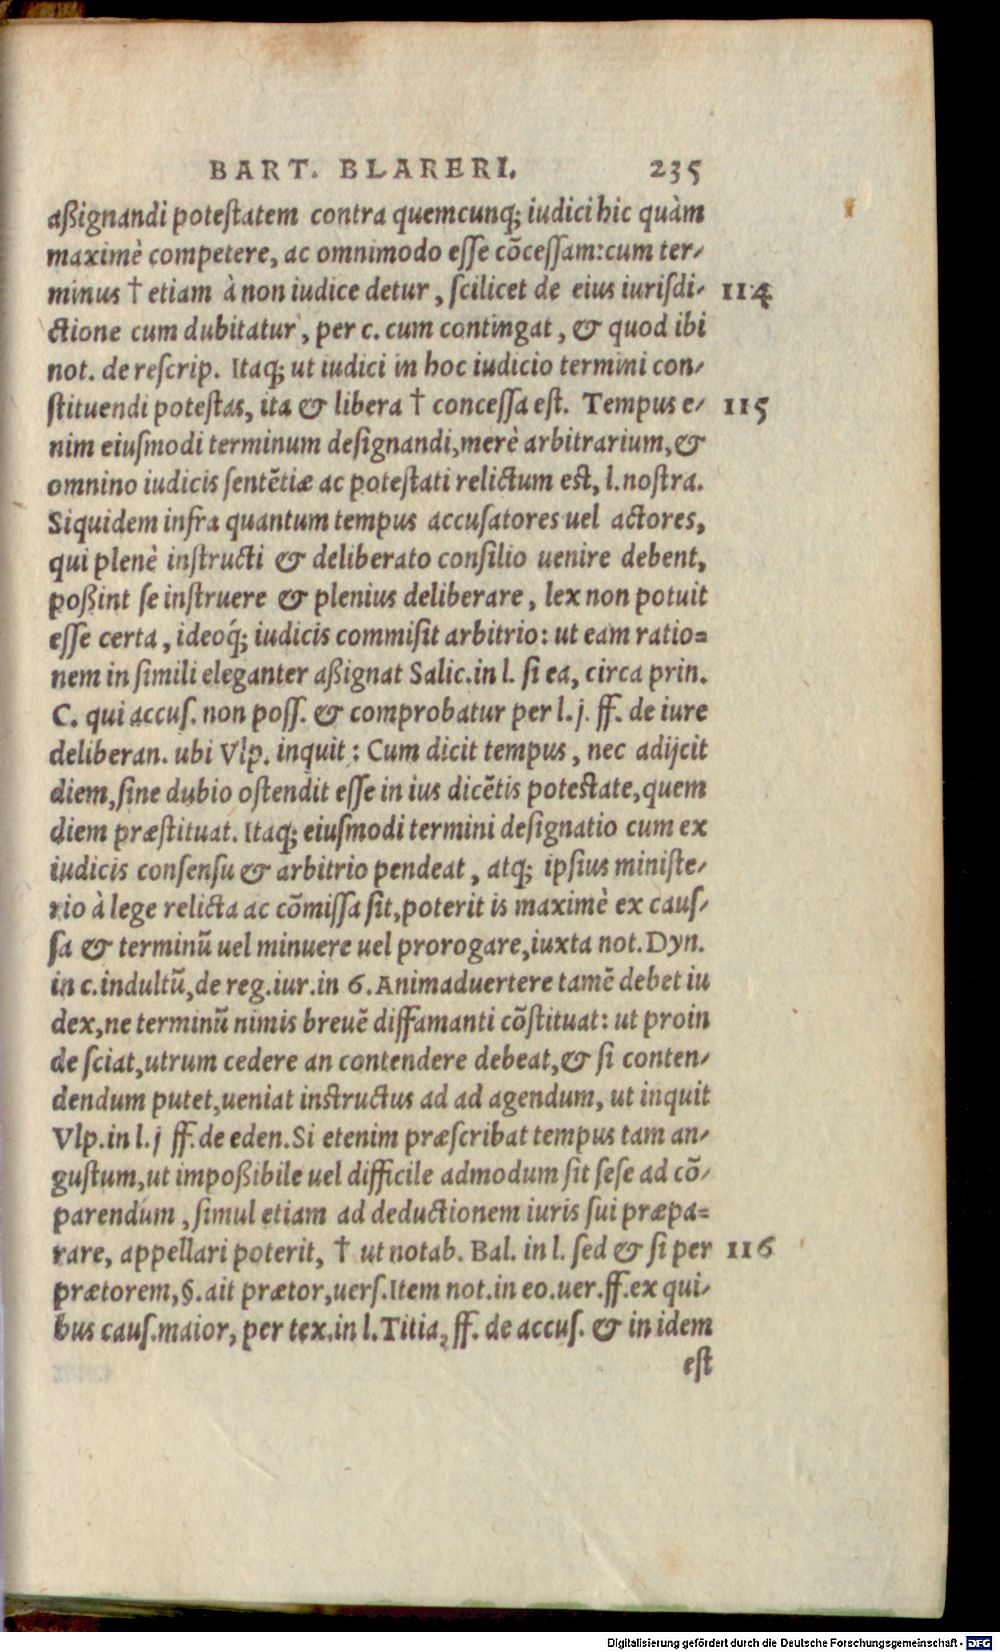 BART. BLARERI. 235
aßignandi poteſtatem contra quemcunq; iudici hic quàm
maximè competere, ac omnimodo eſſe cōceſſam: cum ter-
minus † etiam à non iudice detur, ſcilicet de eius iurisdi- 114
ctione cum dubitatur, per c. cum contingat, & quod ibi
not. de reſcrip. Itaq; ut iudici in hoc iudicio termini con-
ſtituendi poteſtas, ita & libera † conceſſa eſt. Tempus e- 115
nim eiuſmodi terminum deſignandi, merè arbitrarium, &
omnino iudicis ſentētiæ ac poteſtati relictum est, l. noſtra.
Siquidem infra quantum tempus accuſatores uel actores,
qui plenè inſtructi & deliberato conſilio uenire debent,
poßint ſe inſtruere & plenius deliberare, lex non potuit
eſſe certa, ideoq́; iudicis commiſit arbitrio: ut eam ratio=
nem in ſimili eleganter aßignat Salic. in l. ſi ea, circa prin.
C. qui accuſ. non poſſ. & comprobatur per l. j. ff. de iure
deliberan. ubi Vlp. inquit: Cum dicit tempus, nec adijcit
diem, ſine dubio oſtendit eſſe in ius dicētis potestate, quem
diem præſtituat. Itaq; eiuſmodi termini deſignatio cum ex
iudicis conſenſu & arbitrio pendeat, atq; ipſius miniſte-
rio à lege relicta ac cōmiſſa ſit, poterit is maximè ex cauſ-
ſa & terminū uel minuere uel prorogare, iuxta not. Dyn.
in c. indultū, de reg. iur. in 6. Animaduertere tamē debet iu
dex, ne terminū nimis breuē diffamanti cōſtituat: ut proin
de ſciat, utrum cedere an contendere debeat, & ſi conten-
dendum putet, ueniat instructus ad ad agendum, ut inquit
Vlp. in l. j ff. de eden. Si etenim præſcribat tempus tam an-
guſtum, ut impoßibile uel difficile admodum ſit ſeſe ad cō-
parendum, ſimul etiam ad deductionem iuris ſui præpa=
rare, appellari poterit, † ut notab. Bal. in l. ſed & ſi per 116
prætorem, §. ait prætor, uerſ. Item not. in eo. uer. ff. ex qui-
bus cauſ. maior, per tex. in l. Titia, ff. de accuſ. & in idem
eſt
Digitalisierung gefördert durch die Deutsche Forschungsgemeinschaft - DFG